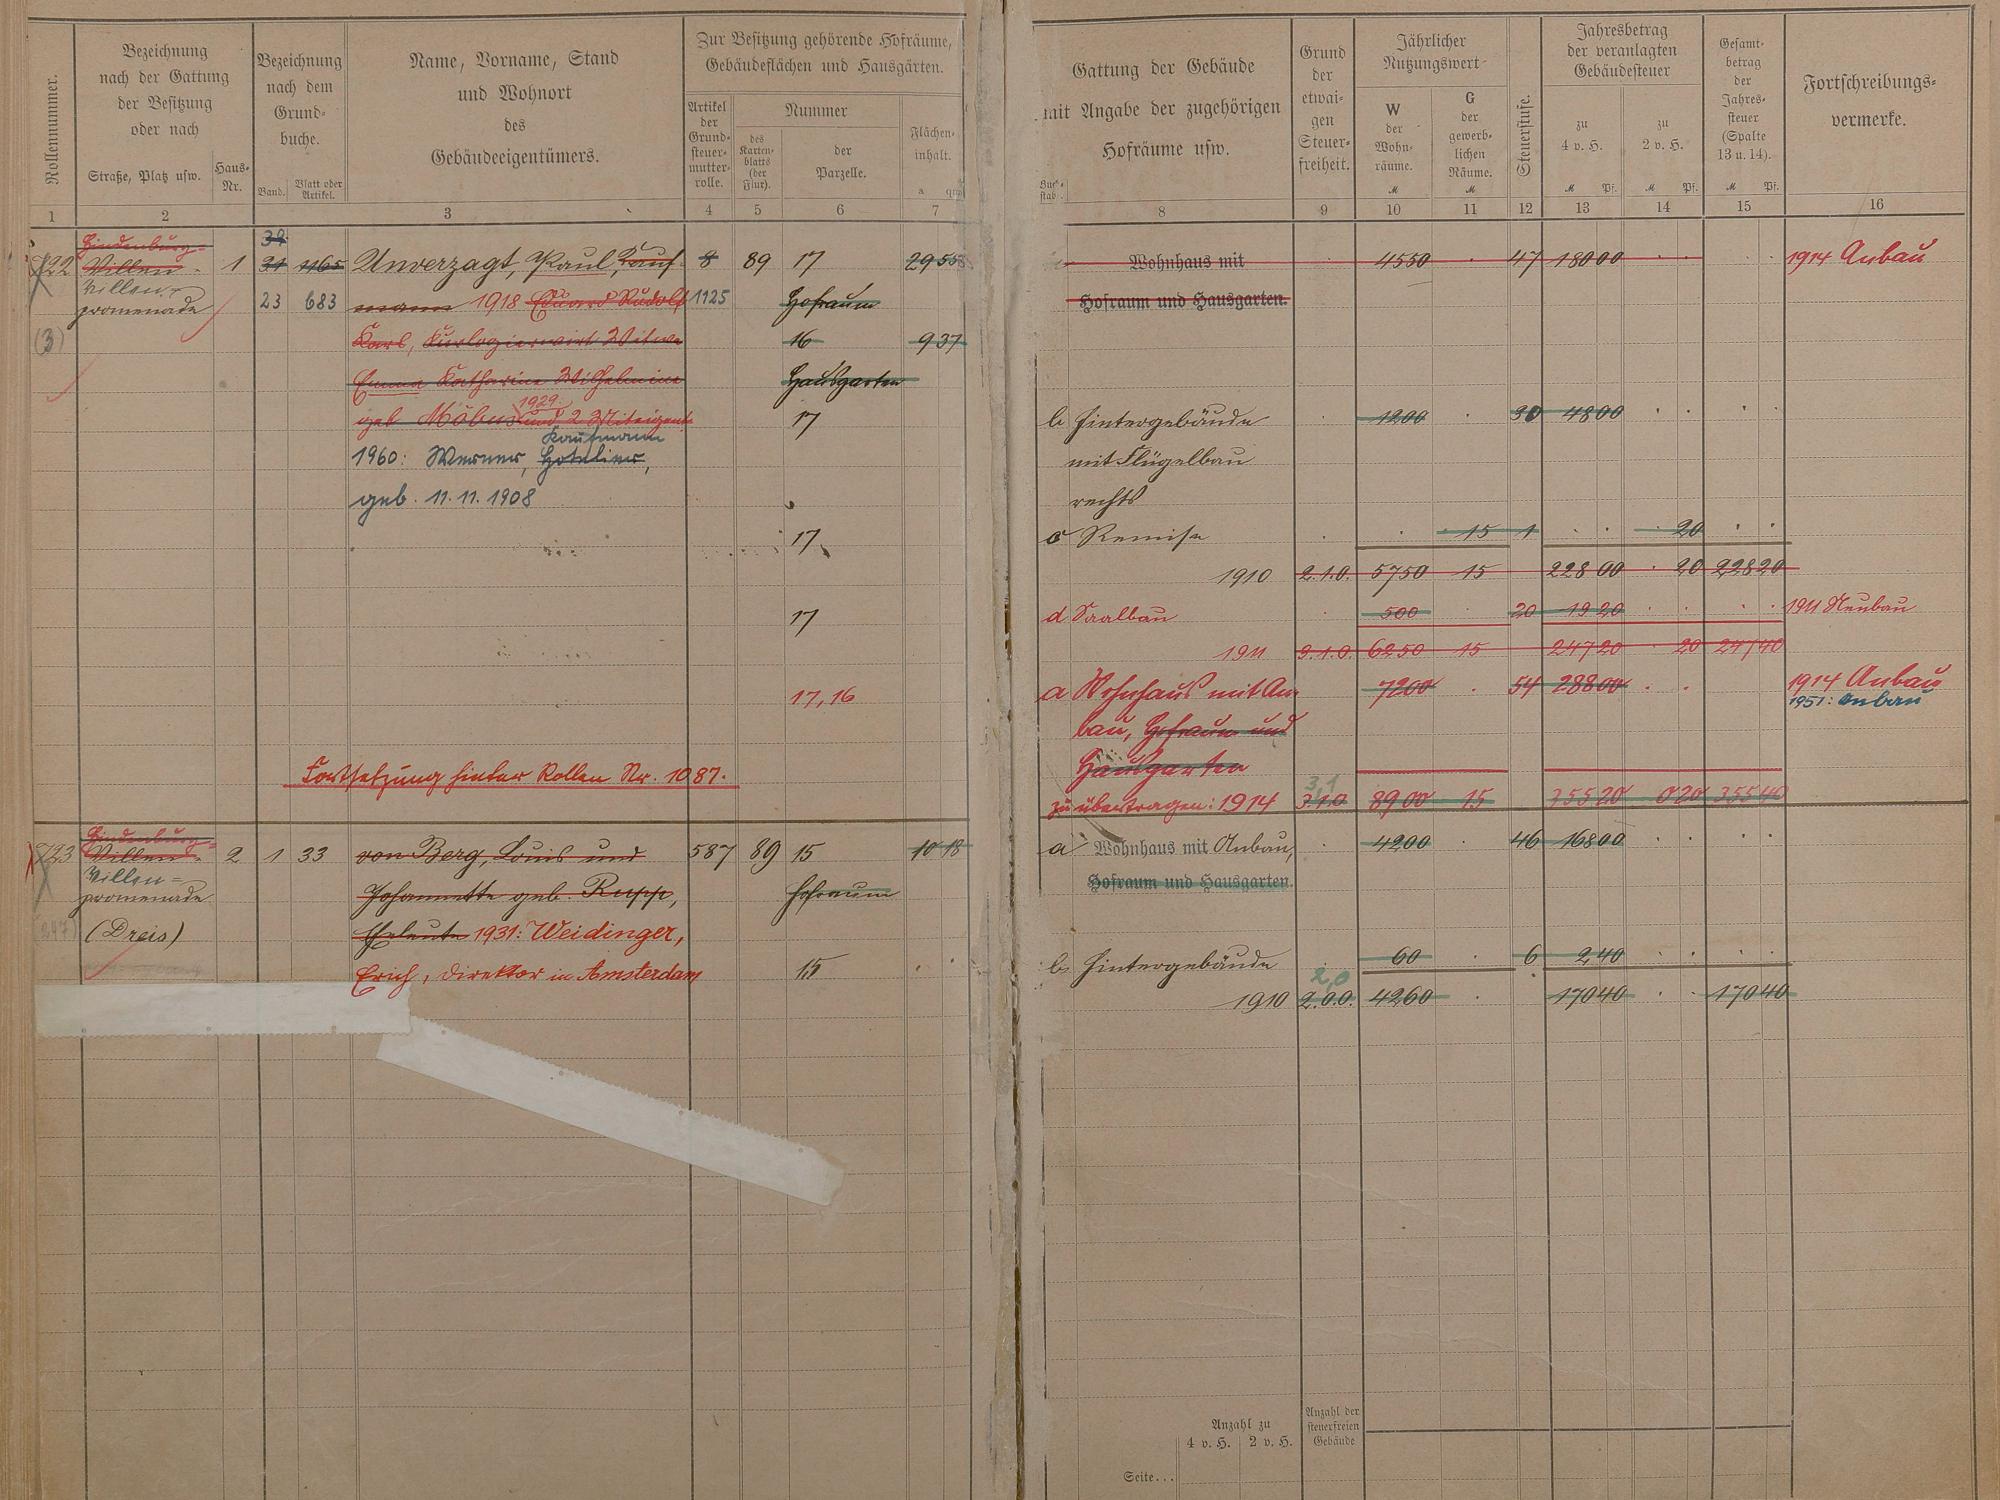 Rollennummer.
Bezeichnung
nach der Gattung
der Besitzung
oder nach
Straße, Platz usw.
Haus-
Nr.
Bezeichnung
nach dem
Grund-
buche.
Band.
Blatt oder
Artikel.
Name, Vorname, Stand
und Wohnort
des
Gebäudeeigentümers.
Zur Besitzung gehörende Hofräume,
Gebäudeflächen und Hausgärten.
Artikel
der
Grund-
steuer-
mutter-
rolle.
Nummer
des
Karten-
blatts
(der
Flur).
der
Parzelle.
Flächen-
inhalt.
a qm
1 2 3 4 5 6 7
Hindenburg-
722 Villen- 1 31 1165 Unverzagt, Paul, Kauf- 8 89 17 29 55
Villen-
promenade 23 683 mann 1918 Eduard Rudolf 1125 Hofraum
(3) Karl, Kurlogierwirt Witwe 16 9 37
Emma Katharine Wilhelmine Hausgarten
1929:
geb. Möbus und 2 Miteigent. 17
Kaufmann
1960: Werner, Hotelier,
geb. 11. 11. 1908
17
17
17, 16
Fortsetzung hinter Rollen Nr. 1087.
Hindenburg-
723 Villen- 2 1 33 von Berg, Louis und 587 89 15 10 18
Villen=
promenade Johannette geb. Rupp, Hofraum
(Dreis) Eheleute 1931: Weidinger,
Erich, Direktor in Amsterdam 15
Gattung der Gebäude
mit Angabe der zugehörigen
Hofräume usw.
Buch-
stab.
Grund
der
etwai-
gen
Steuer-
freiheit.
Jährlicher
Nutzungswert
W
der
Wohn-
räume.
M
G
der
gewerb-
lichen
Räume.
M
Steuerstufe.
Jahresbetrag
der veranlagten
Gebäudesteuer
zu
4 v. H.
M Pf.
zu
2 v. H.
M Pf.
Gesamt-
betrag
der
Jahres-
steuer
(Spalte
13 u. 14).
M Pf.
Fortschreibungs-
vermerke.
8 9 10 11 12 13 14 15 16
Wohnhaus mit 4550 47 180 00 1914 Anbau
Hofraum und Hausgarten.
b Hintergebäude 1200 30 48 00
mit Flügelbau
rechts
c Remise 15 1 20
1910 2.1.0. 5750 15 228 00 20 228 20
d Saalbau 500 20 19 20 1911 Neubau
1911 3.1.0. 6250 15 247 20 20 247 40
a Wohnhaus mit An- 7200 54 288 00 1914 Anbau
1951: Anbau
bau, Hofraum und
Hausgarten
3,1
zu übertragen: 1914 3.1.0 8900 15 355 20 0 20 355 40
a Wohnhaus mit Anbau, 4200 46 168 00
Hofraum und Hausgarten.
b Hintergebäude 60 6 2 40
2,0
1910 2.0.0. 4260 170 40 170 40
Anzahl zu
4 v. H. 2 v. H.
Anzahl der
steuerfreien
Gebäude
Seite...